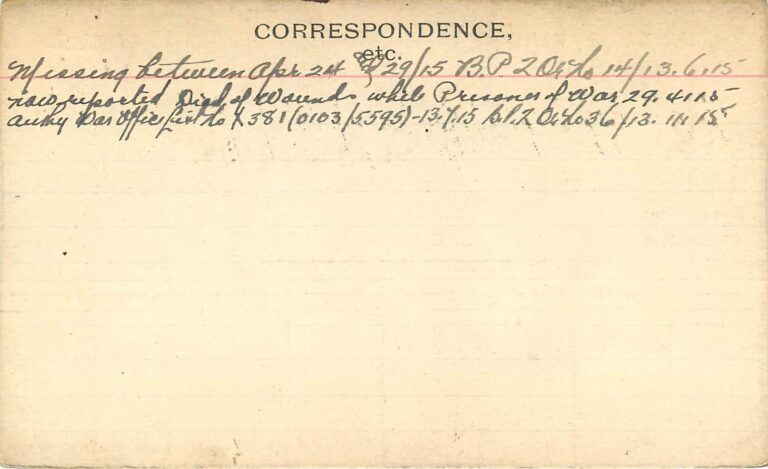 CORRESPONDENCE,
etc.
Missing between Apr 24 & 29/15 B.P 2 Or No 14/13.6.15
now reported Died of Wounds while Prisoner of War 29.4.15
auty War Office List No 381 (0103/5595)-13.7.15 B.P.2 Or No 36/13.